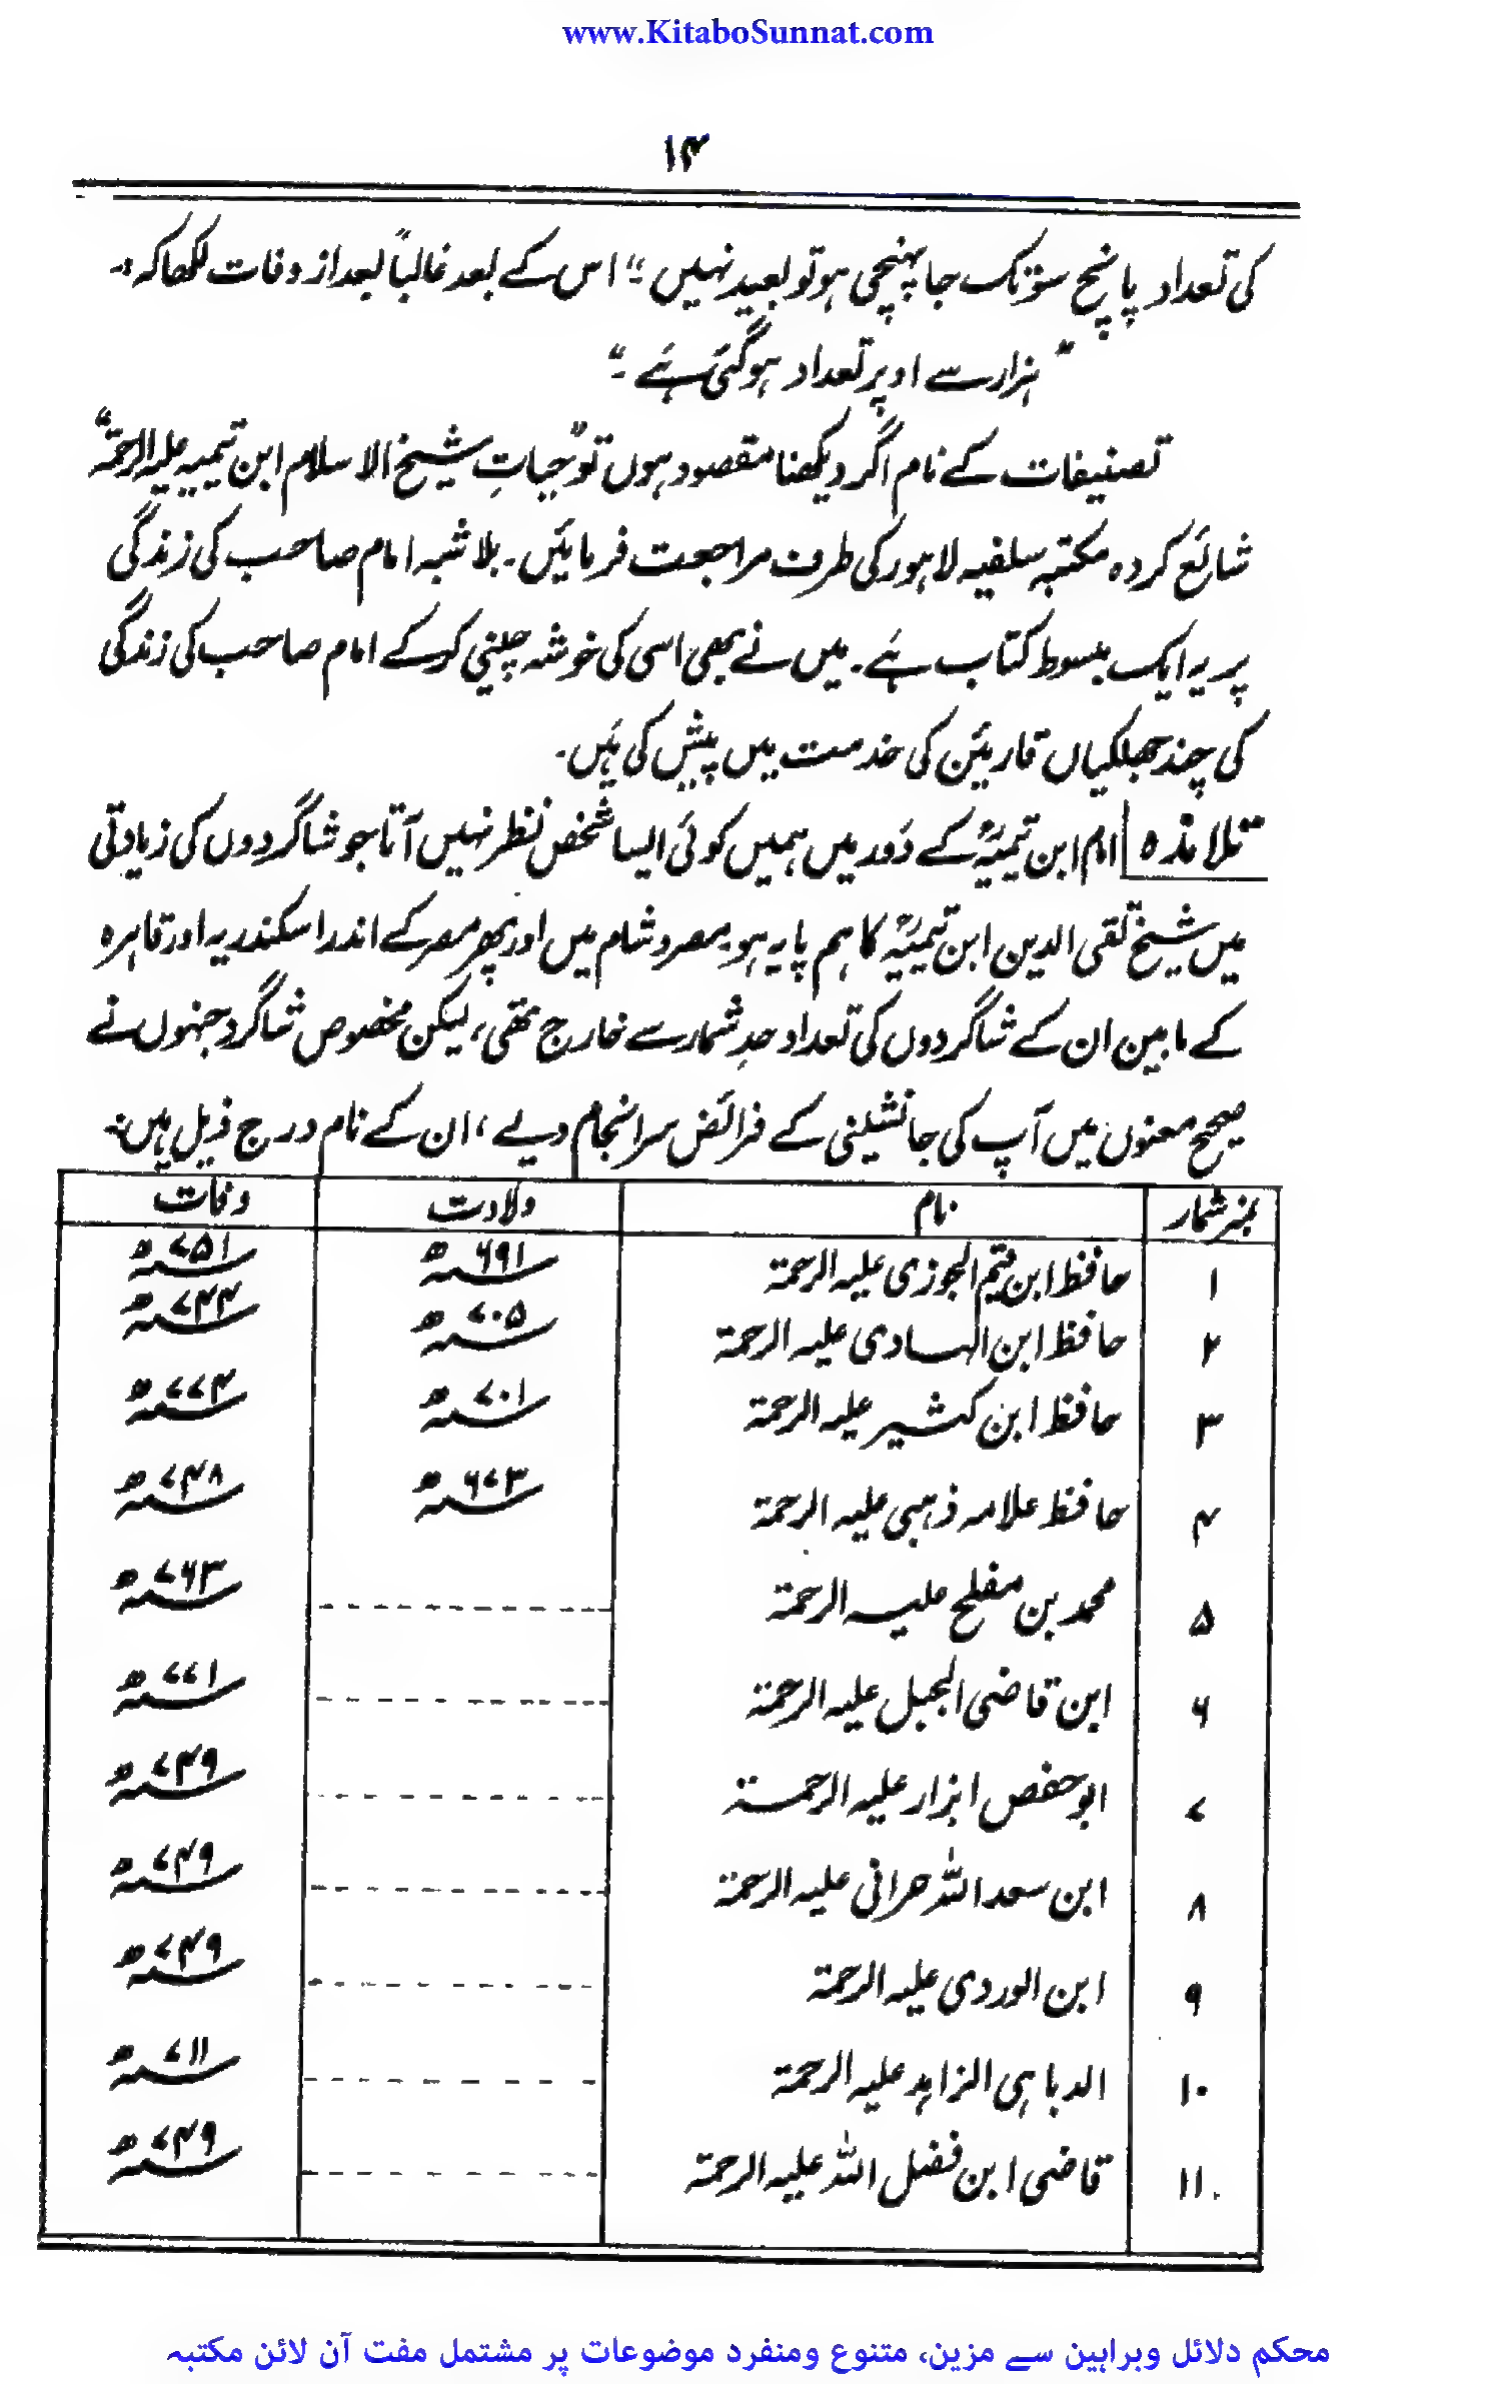 www.KitaboSunnat.com
۱۴
کی تعداد پانچ سو تک جا پہنچی ہو تو بعید نہیں۔" اس کے بعد غالباً بعد از وفات لکھا کہ:۔
"ہزار سے اوپر تعداد ہو گئی ہے۔"
تصنیفات کے نام اگر دیکھنا مقصود ہوں تو "حیاتِ شیخ الاسلام ابن تیمیہ علیہ الرحمۃ"
شائع کردہ مکتبہ سلفیہ لاہور کی طرف مراجعت فرمائیں۔ بلا شبہ امام صاحب کی زندگی
پر یہ ایک مبسوط کتاب ہے۔ میں نے بھی اسی کی خوشہ چینی کر کے امام صاحب کی زندگی
کی چند جھلکیاں قارئین کی خدمت میں پیش کی ہیں۔
تلامذہ | امام ابن تیمیہؒ کے دَور میں ہمیں کوئی ایسا شخص نظر نہیں آتا جو شاگردوں کی زیادتی
میں شیخ تقی الدین ابن تیمیہؒ کا ہم پایہ ہو۔ مصر و شام میں اور پھر مصر کے اندر اسکندریہ اور قاہرہ
کے مابین ان کے شاگردوں کی تعداد حدِ شمار سے خارج تھی، لیکن مخصوص شاگرد جنہوں نے
صحیح معنوں میں آپ کی جانشینی کے فرائض سرانجام دیے، ان کے نام درج ذیل ہیں:۔
نمبر شمار | نام | ولادت | وفات
۱ | حافظ ابن قیم الجوزی علیہ الرحمۃ | ۶۹۱ھ | ۷۵۱ھ
۲ | حافظ ابن الہادی علیہ الرحمۃ | ۷۰۵ھ | ۷۴۴ھ
۳ | حافظ ابن کثیر علیہ الرحمۃ | ۷۰۱ھ | ۷۷۴ھ
۴ | حافظ علامہ ذہبی علیہ الرحمۃ | ۶۷۳ھ | ۷۴۸ھ
۵ | محمد بن مفلح علیہ الرحمۃ | ---------- | ۷۶۳ھ
۶ | ابن قاضی الجبل علیہ الرحمۃ | ---------- | ۷۷۱ھ
۷ | ابو حفص ابزار علیہ الرحمۃ | ---------- | ۷۴۹ھ
۸ | ابن سعد اللہ حرانی علیہ الرحمۃ | ---------- | ۷۴۹ھ
۹ | ابن الوردی علیہ الرحمۃ | ---------- | ۷۴۹ھ
۱۰ | الدباہی الزاہد علیہ الرحمۃ | ---------- | ۷۱۱ھ
۱۱ | قاضی ابن فضل اللہ علیہ الرحمۃ | ---------- | ۷۴۹ھ
محکم دلائل وبراہین سے مزین، متنوع ومنفرد موضوعات پر مشتمل مفت آن لائن مکتبہ